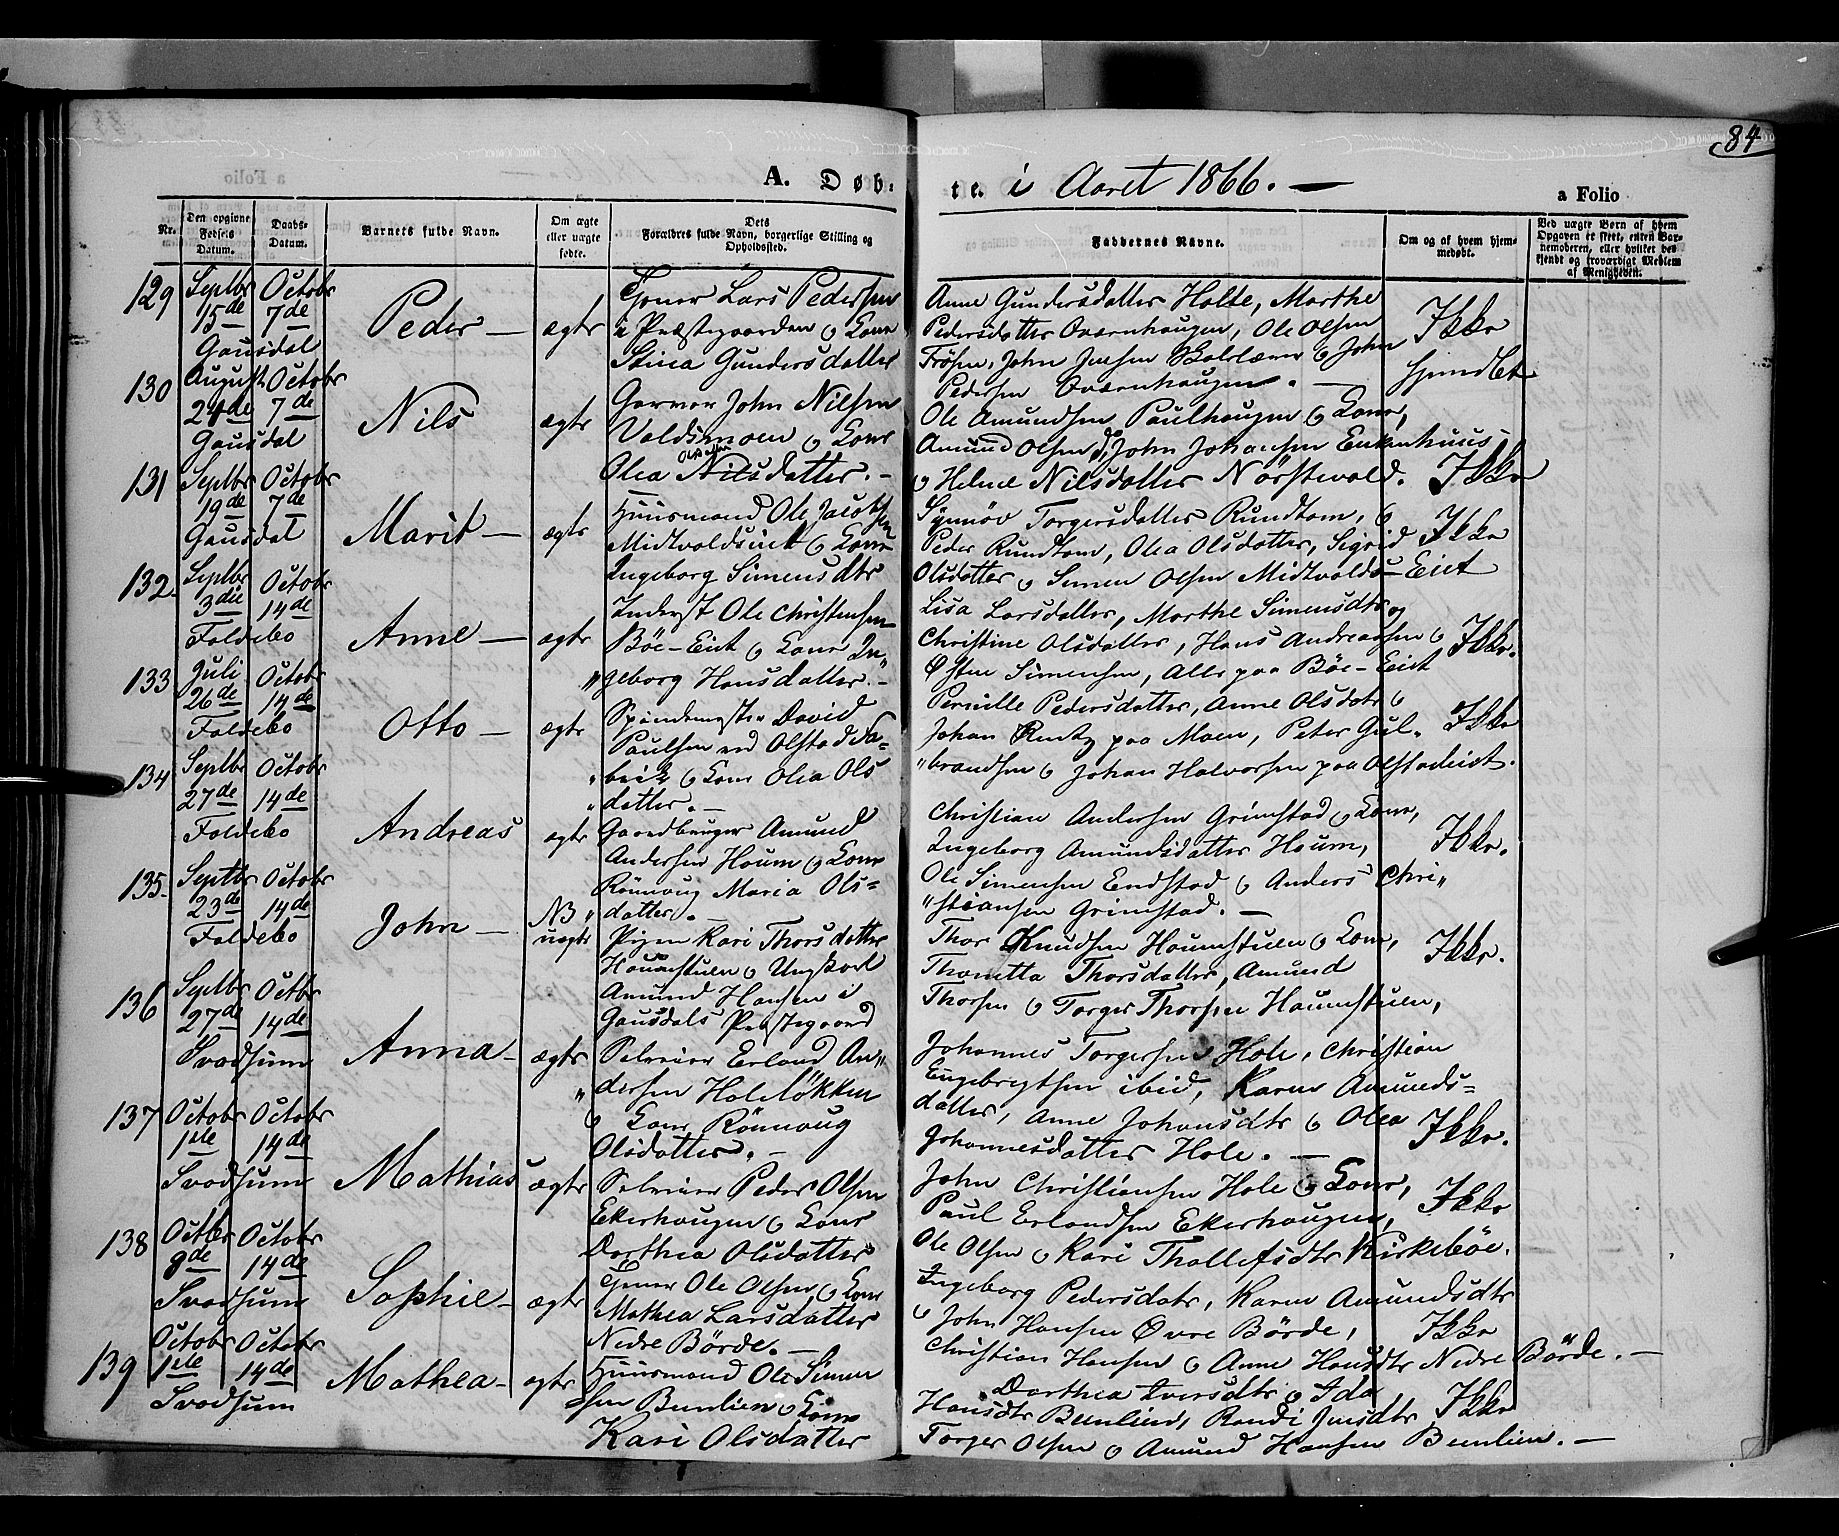 84
A. Døb-
te. i Aaret 1866. —
a Folio
Nr.
Den opgivne Fødsels Datum.
Daabs-Datum.
Barnets fulde Navn.
Om ægte eller uægte fødte.
Dets Forældres fulde Navn, borgerlige Stilling og Opholdssted.
Faddernes Navne.
Om og af hvem hjemmedøbt.
Ved uægte Børn af hvem Opgaven er skeet, enten Barnemoderen, eller hvilket bekjendt og troværdigt Medlem af Menigheden.
129
Septbr 15de
Octobr 7de
Gausdal
Peder —
ægte
Tjener Lars Pedersen
i Præstegaarden & Kone
Stina Gundersdatter
Anne Gundersdatter Holte, Marthe
Pedersdatter Overnhaugen, Ole Olsen
Frösen, John Jensen Skolelærer & John
Pedersen Overnhaugen. —
Ikke
hjemdöbt
130
August 24de
Octobr 7de
Gausdal
Nils
ægte
Garver John Nilsen
Voldsmoen & Kone
Olea Nilsdatter. —
Ole Amundsen Paulhaugen & Kone,
Amund Olsen John Johansen Enkenhuus
& Helene Nilsdatter Nörstevold.
Ikke
131
Septbr 19de
Octobr 7de
Gausdal
Marit —
ægte
Huusmand Ole Jacobsen
Midtvoldseiet & Kone
Ingeborg Simensdtr
Synnöv Torgersdatter Rundtom, &
Peder Rundtom, Olea Olsdatter, Sigrid
Olsdatter & Simen Olsen Midtvolds-Eiet
Ikke
132
Septbr 3die
Octobr 14de
Foldebo
Anne —
ægte
Inderst Ole Christensen
Böe-Eiet & Kone In-
geborg Hansdatter. —
Lisa Larsdatter, Marthe Simensdtr og
Christine Olsdatter, Hans Andreassen &
Østen Simensen, Alle paa Böe-Eiet
Ikke.
133
Juli 26de
Octobr 14de
Foldebo
Otto —
ægte
Spindemester David
Paulsen ved Olstad Fa-
brik & Kone Olea Ols-
datter. —
Pernille Pedersdatter, Anne Olsdatr &
Johan Rentz paa Moen, Peter Gul-
brandsen & Johan Halvorsen paa Olstadeiet.
Ikke
134
Septbr 27de
Octobr 14de
Foldebo
Andreas
ægte
Gaardbruger Amund
Andersen Houm & Kone
Rönnoug Maria Ols-
datter. —
Christian Andersen Grimstad & Kone,
Ingeborg Amundsdatter Houm,
Ole Simensen Endstad & Anders Chri-
stiansen Grimstad. —
Ikke.
135
Septbr 23de
Octobr 14de
Foldebo
John —
NB uægte
Pigen Kari Thorsdatter
Houmstuen & Ungkarl
Amund Hansen i
Gausdals Præstegaard
Thor Knudsen Houmstuen & Kone,
Thonetta Thorsdatter, Amund
Thorsen & Torger Thorsen Houmstuen,
Ikke.
136
Septbr 27de
Octbr 14de
Svadsum
Anna —
ægte
Selveier Erland An-
dersen Holelökken
& Kone Rönnoug
Olsdatter. —
Johannes Torgersen Hole, Christian
Engebregtsen ibid, Karen Amunds-
datter, Anne Johansdtr & Olea
Johannesdatter Hole. —
Ikke.
137
Octobr 1ste
Octobr 14de
Svadsum
Mathias
ægte
Selveier Peder Olsen
Ekerhaugen & Kone
Dorthea Olsdatter
John Christiansen Hole & Kone,
Paul Erlandsen Ekerhaugen,
Ole Olsen & Kari Thollefsdtr Kirkeböe.
Ikke
138
Octbr 8de
Octobr 14de
Svadsum
Sophie —
ægte
Tjener Ole Olsen & Kone
Mathea Larsdatter
Nedre Börde. —
Ingeborg Pedersdatr, Karen Amundsdtr
& John Hansen Övre Börde,
Christian Hansen & Anne Hansdtr Nedre Börde. —
Ikke
139
Octobr 1ste
Octobr 14de
Svadsum
Mathea —
ægte
Huusmand Ole Simen-
sen Benlien & Kone
Kari Olsdatter
Dorthea Iversdtr & Ida
Hansdtr Benlien, Randi Jensdtr
Torger Olsen & Amund Hansen Benlien. —
Ikke